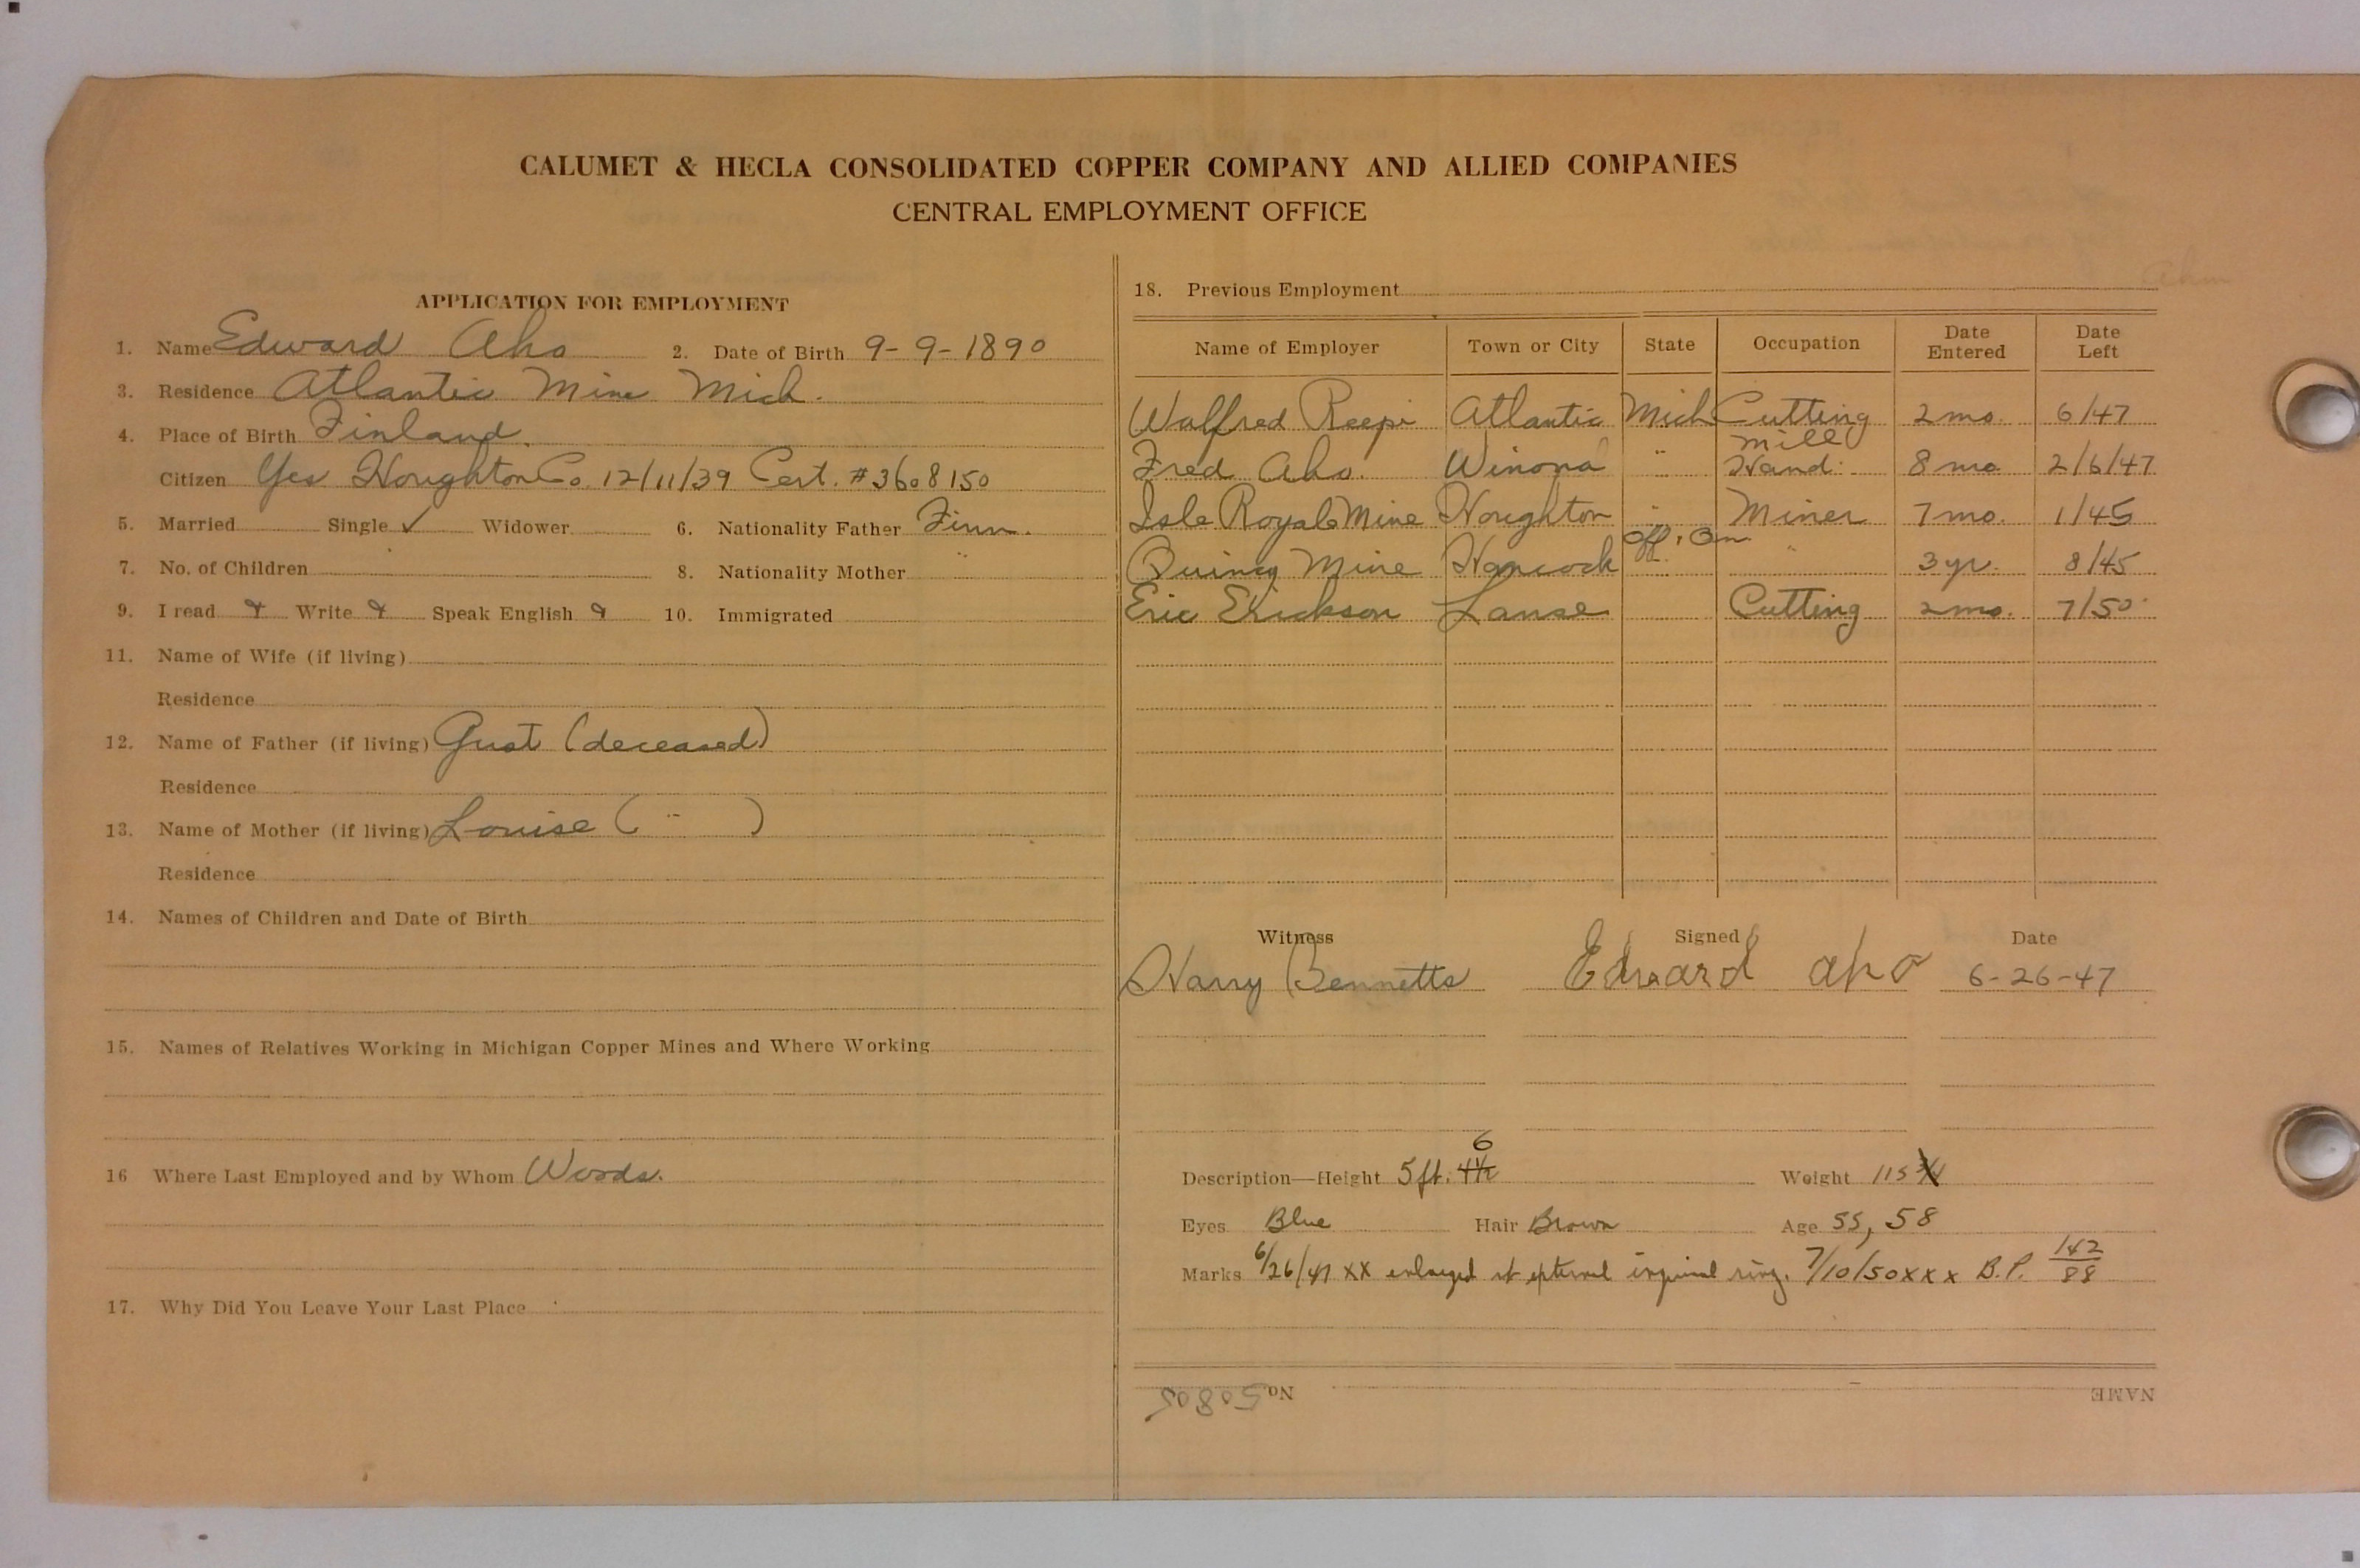 CALUMET & HECLA CONSOLIDATED COPPER COMPANY AND ALLIED COMPANIES
CENTRAL EMPLOYMENT OFFICE
APPLICATION FOR EMPLOYMENT
1. Name Edward Aho 2. Date of Birth 9-9-1890
3. Residence Atlantic Mine Mich.
4. Place of Birth Finland.
Citizen Yes Houghton Co. 12/11/39 Cert. #3608150
5. Married Single ✓ Widower 6. Nationality Father Finn.
7. No. of Children 8. Nationality Mother "
9. I read Write Speak English 10. Immigrated
11. Name of Wife (if living)
Residence
12. Name of Father (if living) Gust (deceased)
Residence
13. Name of Mother (if living) Louise ( " )
Residence
14. Names of Children and Date of Birth
15. Names of Relatives Working in Michigan Copper Mines and Where Working
16 Where Last Employed and by Whom Woods.
17. Why Did You Leave Your Last Place
18. Previous Employment
Name of Employer Town or City State Occupation Date Entered Date Left
Walfred Reepi Atlantic Mich Cutting 2 mo. 6/47
Fred Aho. Winona " Mill Hand. 8 mo 2/6/47
Isle Royale Mine Houghton " Miner 7 mo. 1/45
Quincy Mine Hancock off & on " 3 yr. 8/45
Eric Erickson Lanse Cutting 2 mo. 7/50
Witness Signed Date
Harry Bennetts Edward aho 6-26-47
Description—Height 5 ft. 4½ 6 Weight 115 ¾
Eyes Blue Hair Brown Age 55, 58
Marks 6/26/47 XX enlarged rt external inguinal ring. 7/10/50 XXX B.P. 142/88
No. 50805 NAME